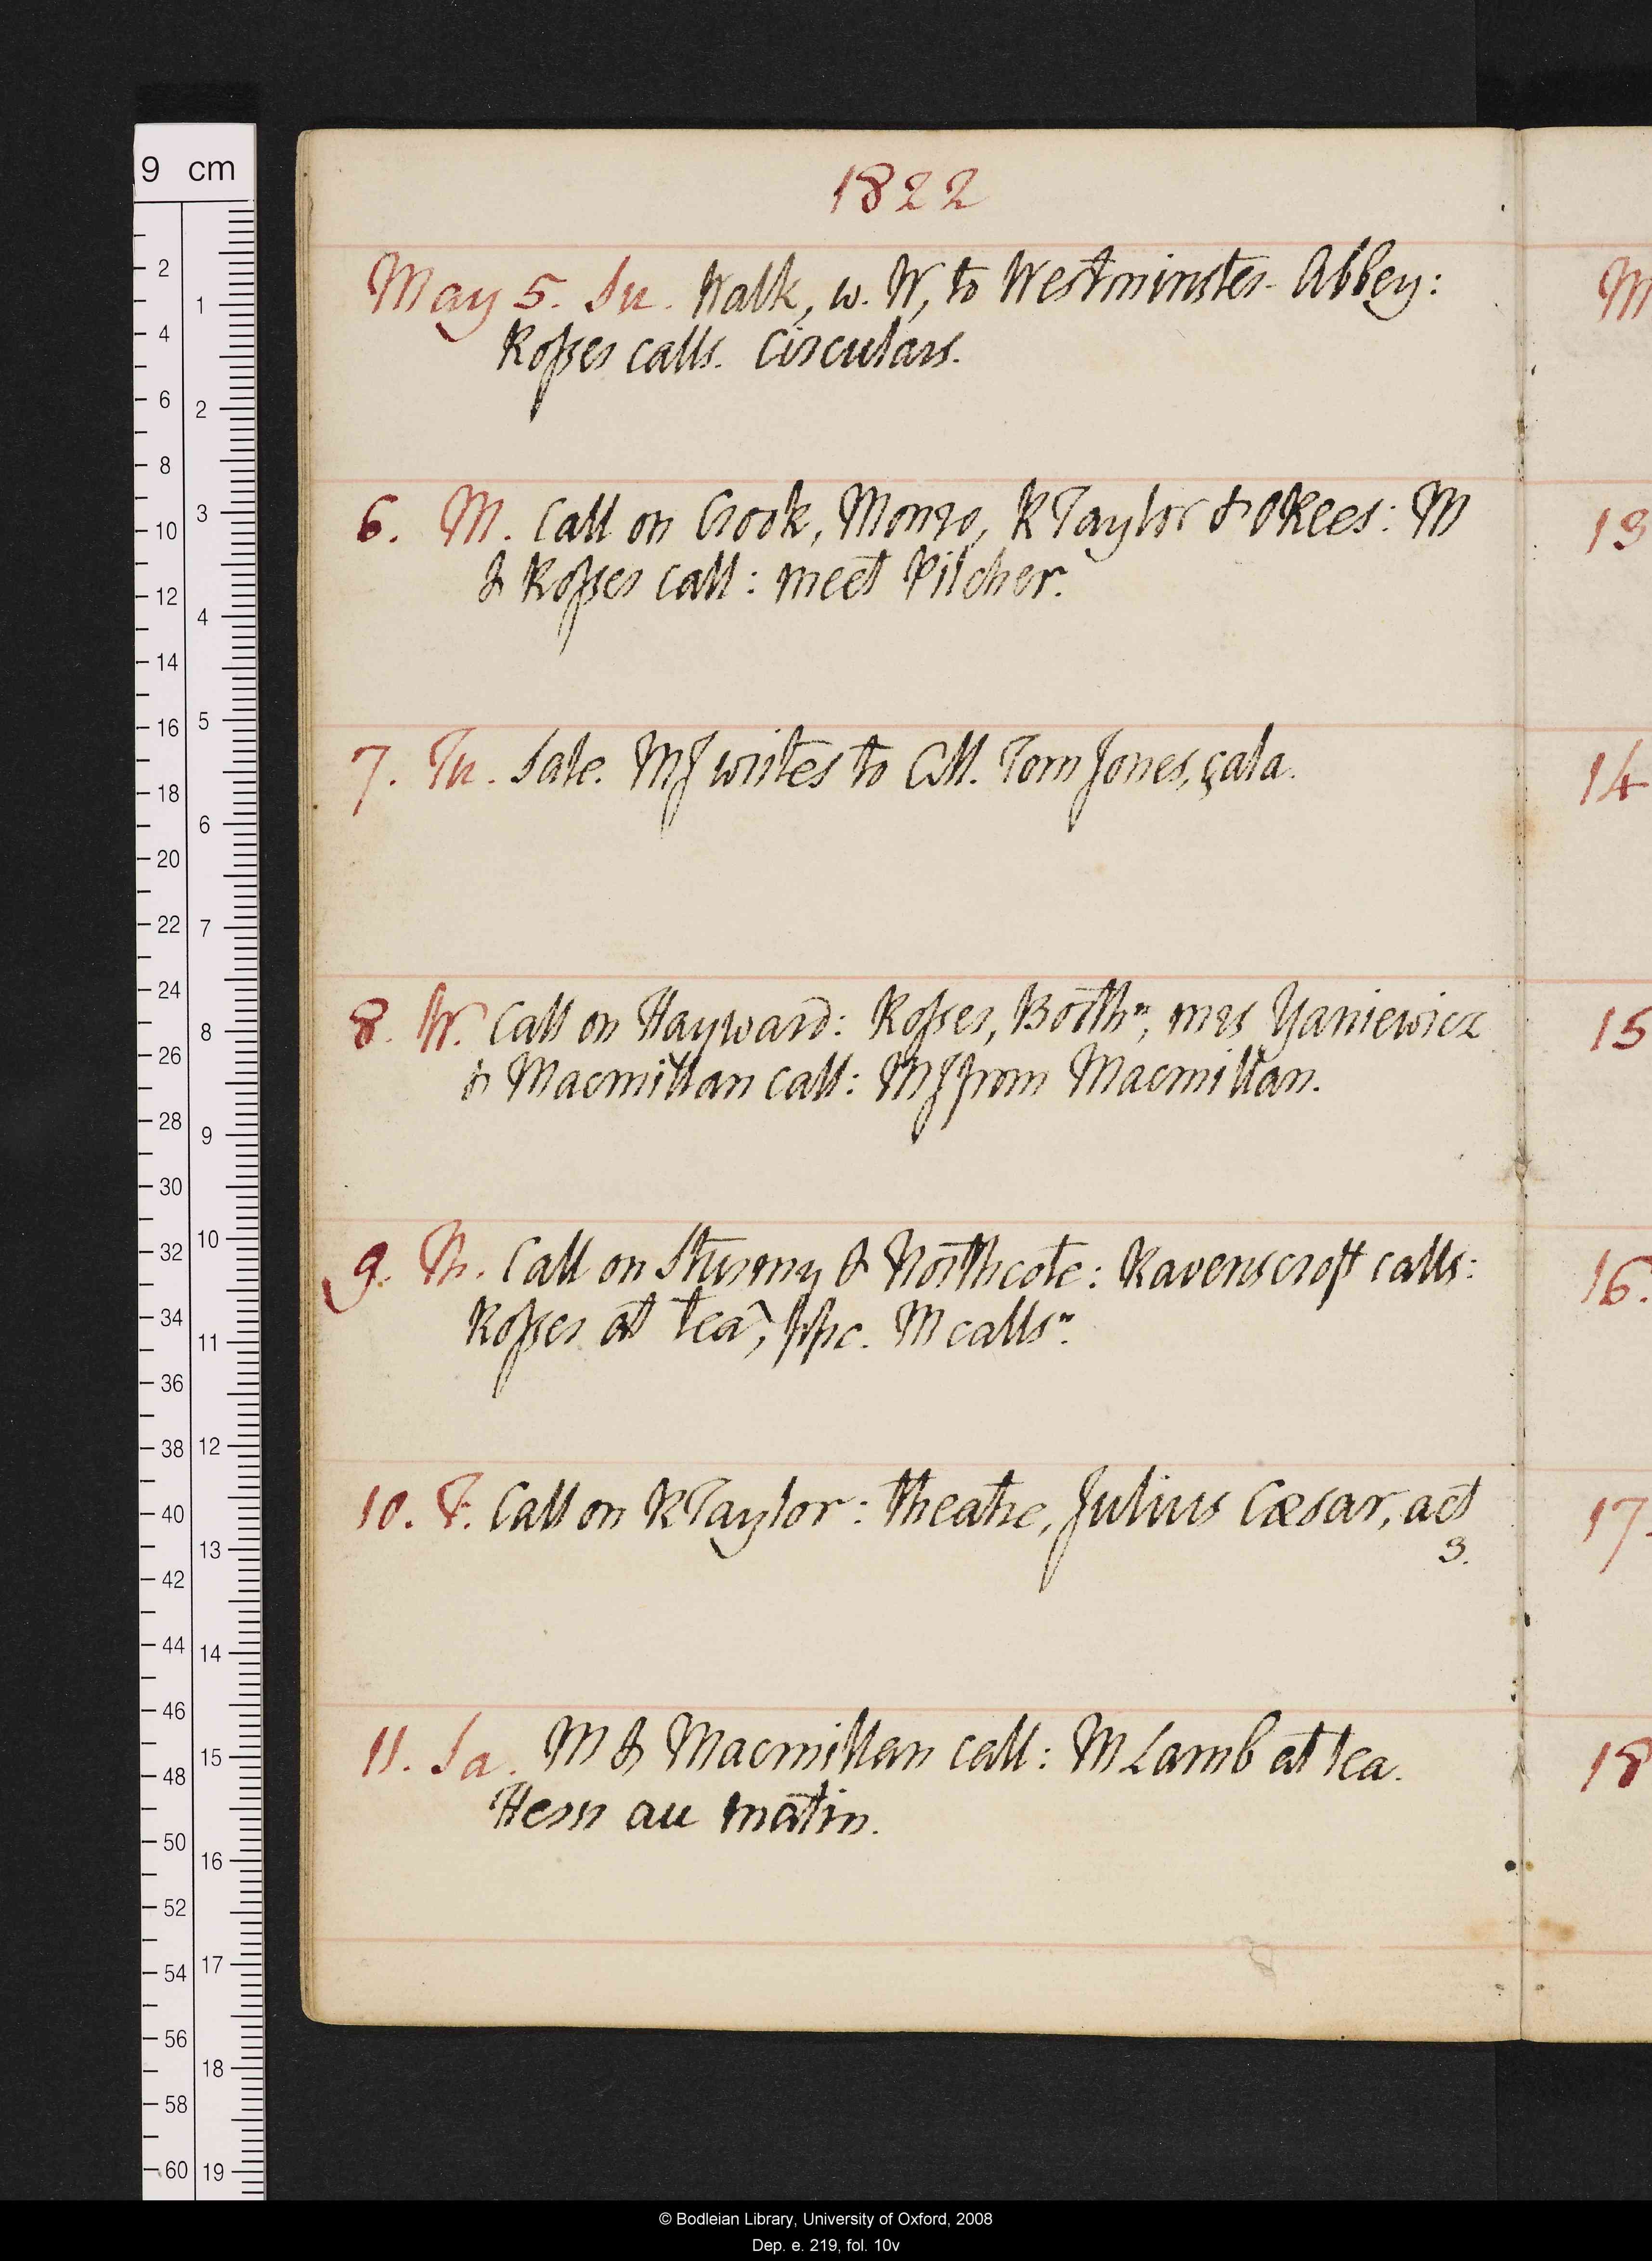 1822
May 5. Su. Walk, w. W, to Westminster Abbey:
Rosser calls. Circulars.
6. M. Call on Crook, Monro, R Taylor & ORees: M
& Rosser call: meet Pilcher.
7. Tu. Sale. MJ writes to CM. Tom Jones, çala.
8. W. Call on Hayward: Rosser, Bothn, mrs Yaniewicz
& Macmillan call: MJ from Macmillan.
9. Th. Call on Sturmy & Northcote: Ravenscroft calls:
Rosser at tea, ppc. M callsn.
10. F. Call on R Taylor: theatre, Julius Cæsar, act
3.
11. Sa. M & Macmillan call: M Lamb at tea.
au matin.
M
13
14
15
16.
17.
18
9 cm
2
4
6
8
10
12
14
16
18
20
22
24
26
28
30
32
34
36
38
40
42
44
46
48
50
52
54
56
58
60
1
2
3
4
5
6
7
8
9
10
11
12
13
14
15
16
17
18
19
© Bodleian Library, University of Oxford, 2008
Dep. e. 219, fol. 10v